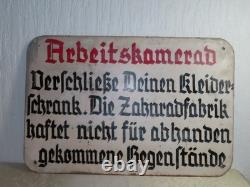 Arbeitskamerad
Verschließe Deinen Kleider-
schrank. Die Zahnradfabrik
haftet nicht für abhanden
gekommene Gegenstände